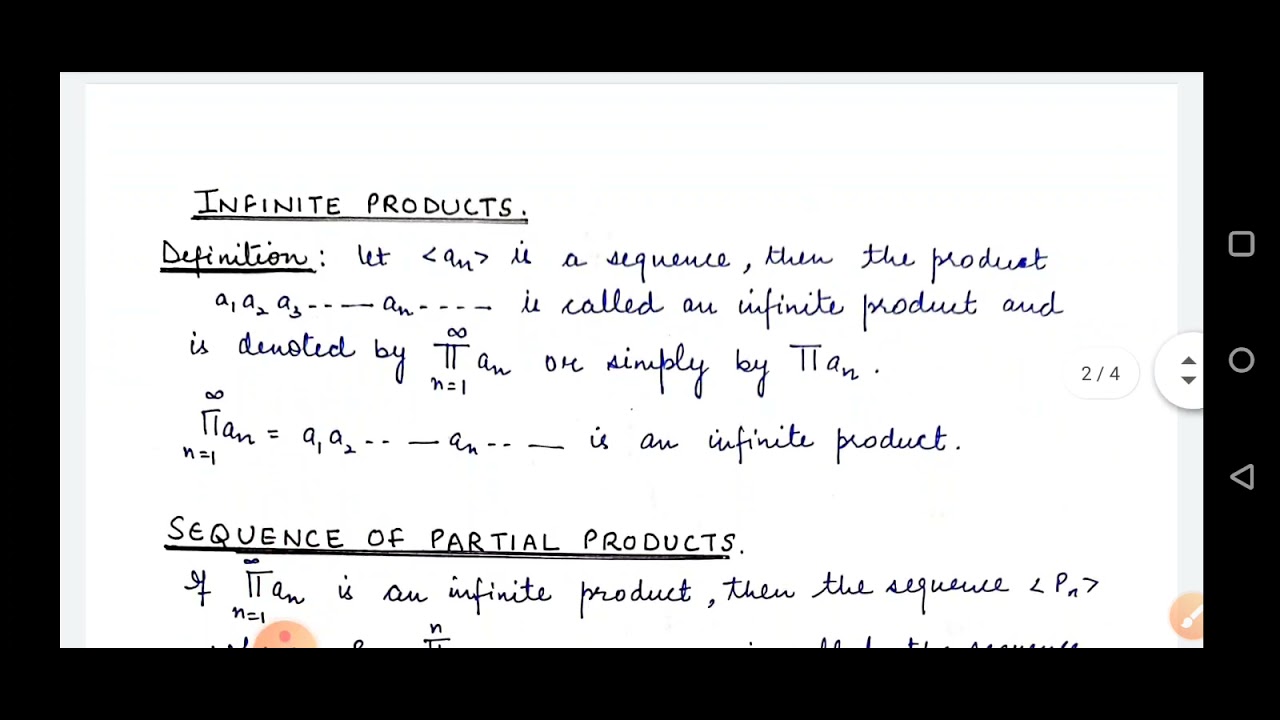 INFINITE PRODUCTS.
Definition: let <aₙ> is a sequence, then the product
a₁ a₂ a₃ ----— aₙ ----- is called an infinite product and
is denoted by ∞∏n=1 aₙ or simply by ∏aₙ.
∞∏n=1 aₙ = a₁ a₂ -- — aₙ -- — is an infinite product.
2 / 4
SEQUENCE OF PARTIAL PRODUCTS.
If ∞∏n=1 aₙ is an infinite product, then the sequence <Pₙ>
n
the sequence